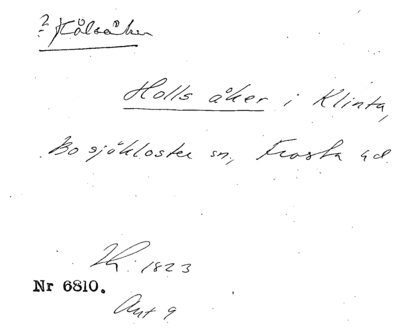 ? Kålsåker
Holls åker i Klinta,
Bosjökloster sn, Frosta hd.
1823
Nr 6810.
Akt 9